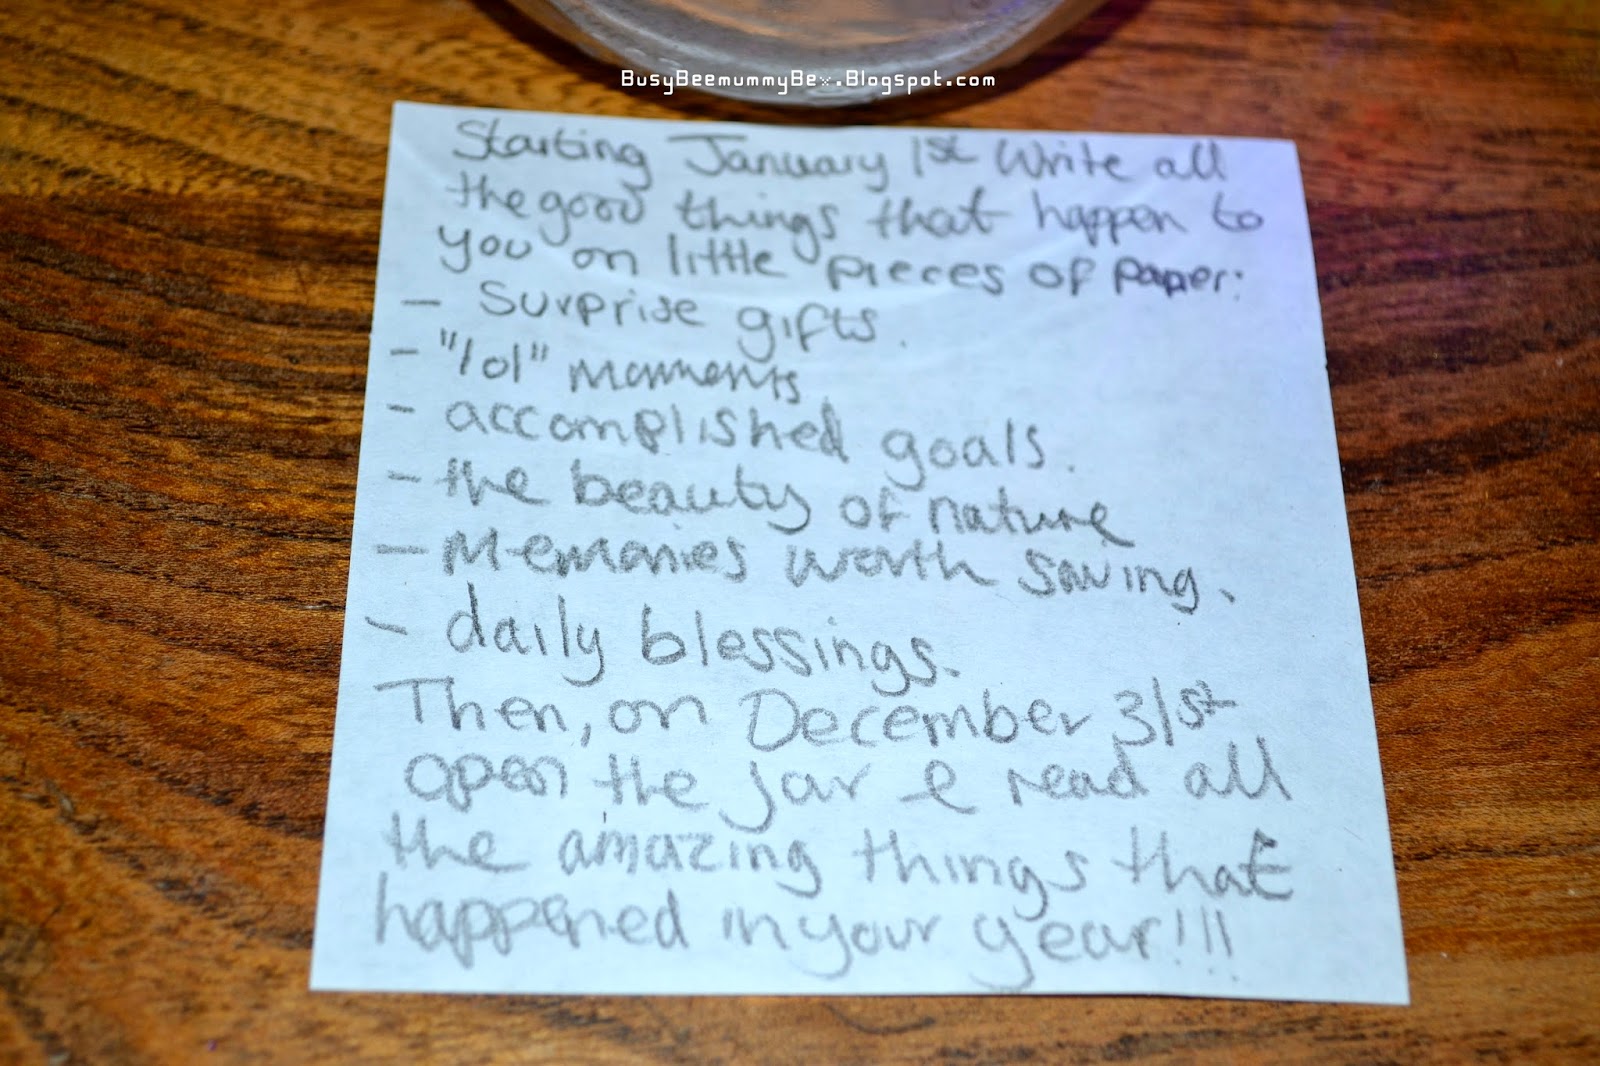 BusyBeemummyBex.Blogspot.com
Starting January 1st Write all
the good things that happen to
you on little pieces of paper:
- Surprise gifts.
- "lol" moments
- accomplished goals.
- the beauty of nature
- Memories worth saving.
- daily blessings.
Then, on December 31st
open the jar & read all
the amazing things that
happened in your year!!!